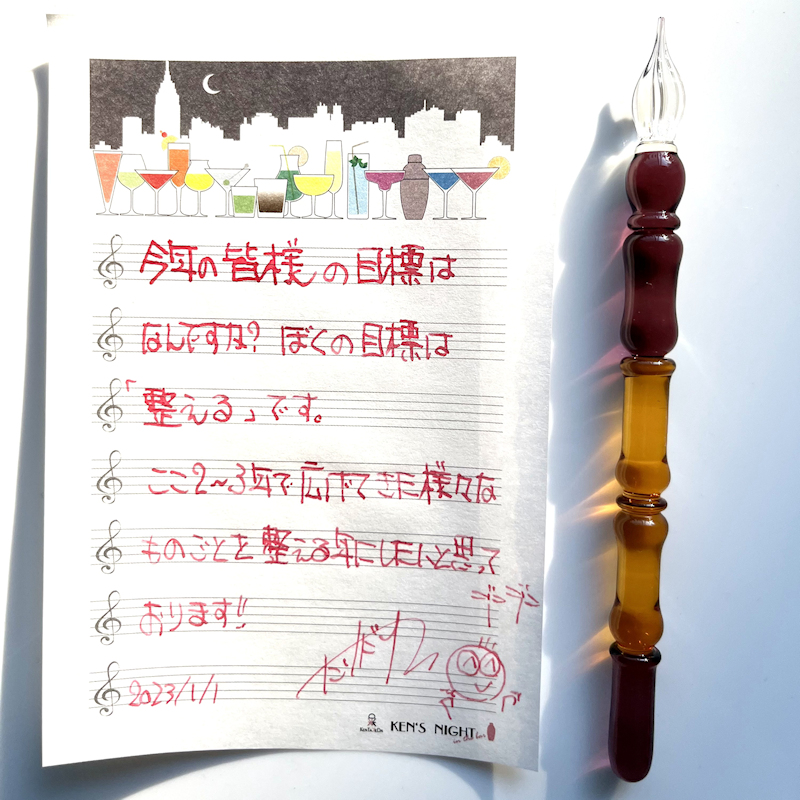 今年の皆様の目標は
なんですか? ぼくの目標は
「整える」です。
ここ2〜3年で広げてきた様々な
ものごとを整える年にしたいと思って
おります!!
2023/1/1
KEN'S NIGHT